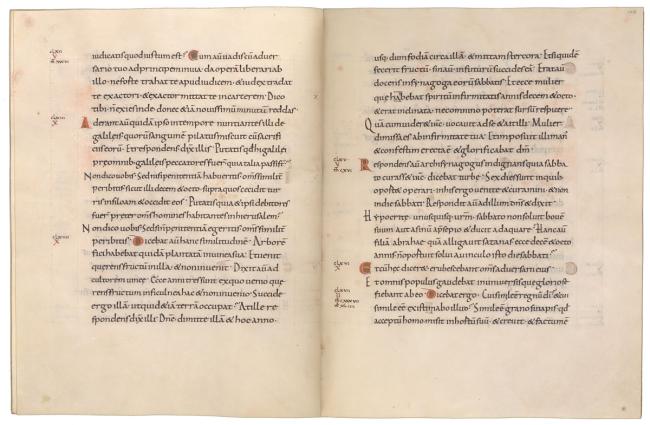 iudicatis quod iustum est? Cum aũ uadis cũ aduer
sario tuo ad principem in uia· da operã liberari ab
illo· ne forte trahat te apud iudicem· & iudex tradat
te exactori· & exactor mittat te in carcerem· Dico
tibi· n exies inde donec &iã nouissimũ minutũ reddas
Aderant aũ quidã ipso in tempore· nuntiantes illi de
galileis· quorũ sanguinẽ pilatus miscuit cũ sacrifi
ciis eorũ· Et respondens dx̃ illis· Putatis qd hi galilei
pre omnib galileis peccatores fuer̃ quia talia passi s̃t
Non dico uobis· Sed nisi penitentiã habueritis· om̃s similit̃
peribitis· sicut illi decem & octo· supra quos cecidit tur
ris in siloam & occidit eos· Putatis quia & ipsi debitores
fuer̃ preter om̃s homines habitantes in hierusalem?
Non dico uobis· Sed si penitentiã n egeritis· om̃s similit̃
peribitis· Dicebat aũ hanc similitudinẽ· Arborẽ
fici habebat quidã plantatã in uinea sua· Et uenit
querens fructũ in illa· & non inuenit· Dixit aũ ad
cultorem uineę· Ecce anni tres sunt ex quo uenio que
rens fructum in ficulnea hac & non inuenio· Succide
ergo illã· ut quid &iã terrã occupat? At ille re
spondens dx̃ illi· Dñe· dimitte illã & hoc anno·
usq; dum fodiã circa illã· & mittam stercora· Et siquidẽ
fecerit fructũ· sin aũ· in futurũ succides eã· Erat aũ
docens in synagoga eorũ sabbatis· Et ecce mulier
que habebat spiritũ infirmitatis annis decem & octo·
& erat inclinata· nec omnino poterat sursũ respicere
Quã cum uider& ihc̃· uocauit ad se· & ait illi· Mulier
dimissa es ab infirmitate tua· Et imposuit illi man̄
& confestim erecta ẽ· & glorificabat dm̃·
Respondens aũ archisynagogus· indignans quia sabba
to curass& ihc̃· dicebat turbę· Sex dies sunt in quib
oport& operari· in his ergo uenite & curamini· & non
in die sabbati· Respondit aũ ad illum dñs & dixit·
Hypocritę· unusquisq; ur̃m sabbato non soluit bouẽ
suum aut asinũ a presepio· & ducit adaquare· Hanc aũ
filiã abrahę quã alligauit satanas ecce decẽ & octo
annis· n oportuit solui a uinculo isto die sabbati?
Et cũ hęc dicer&· erubescebant om̃s aduersarii eius·
Et omnis populus gaudebat in uniuersis que gloriose
fiebant ab eo· Dicebat ergo· Cui simile ẽ regnũ di̅· & cui
simile eẽ existimabo illud? Simile ẽ grano sinapis· qd
acceptũ homo misit in hortũ suũ· & creuit· & factũ ẽ